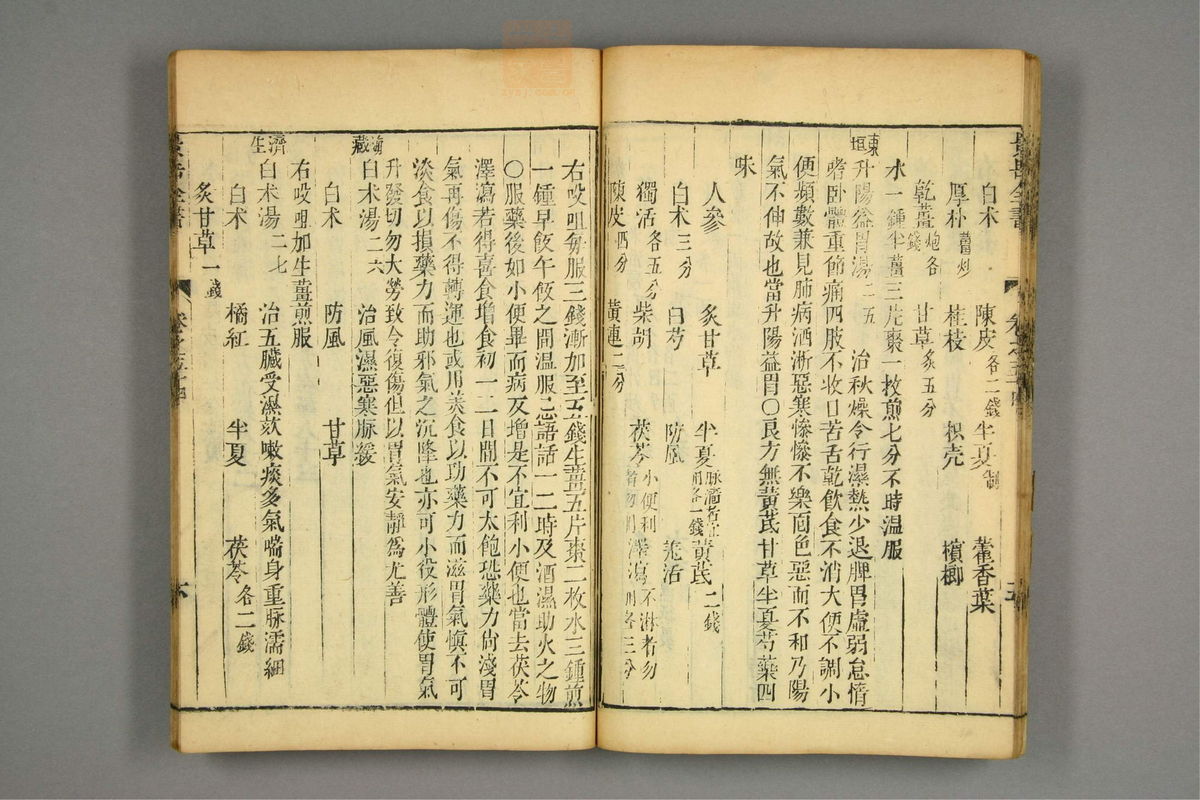 白朮 陳皮各二錢 半夏製 藿香葉
厚朴薑炒 桂枝 枳壳 檳榔
乾薑炮各 錢 甘草炙五分
水一鍾半薑三片棗一枚煎七分不時溫服
東垣升陽益胃湯二五 治秋燥令行濕熱少退脾胃虛弱怠惰
嗜卧體重節痛四肢不收口苦舌乾飲食不消大便不調小
便頻數兼見肺病洒淅惡寒慘慘不樂面色惡而不和乃陽
氣不伸故也當升陽益胃〇良方無黃芪甘草半夏芍藥四
味
人參 炙甘草 半夏脉濇者宜用各一錢 黃芪二錢
白朮三分 白芍 防風 羌活
獨活各五分 柴胡 茯苓小便利者勿用 澤瀉不淋者勿用各三分
陳皮四分 黃連二分
右㕮咀每服三錢漸加至五錢生薑五片棗二枚水三鍾煎
一鍾早飯午飯之間溫服忌語話一二時及酒濕助火之物
〇服藥後如小便畢而病反增是不宜利小便也當去茯苓
澤瀉若得喜食增食初一二日間不可太飽恐藥力尚淺胃
氣再傷不得轉運也或用美食以助藥力而滋胃氣慎不可
淡食以損藥力而助邪氣之沉降也亦可小役形體使胃氣
升發切勿大勞致令復傷但以胃氣安靜為尤善
海藏白朮湯二六 治風濕惡寒脉緩
白朮 防風 甘草
右㕮咀加生薑煎服
濟生白朮湯二七 治五臟受濕欬嗽痰多氣喘身重脉濡細
白朮 橘紅 半夏 茯苓各二錢
炙甘草一錢